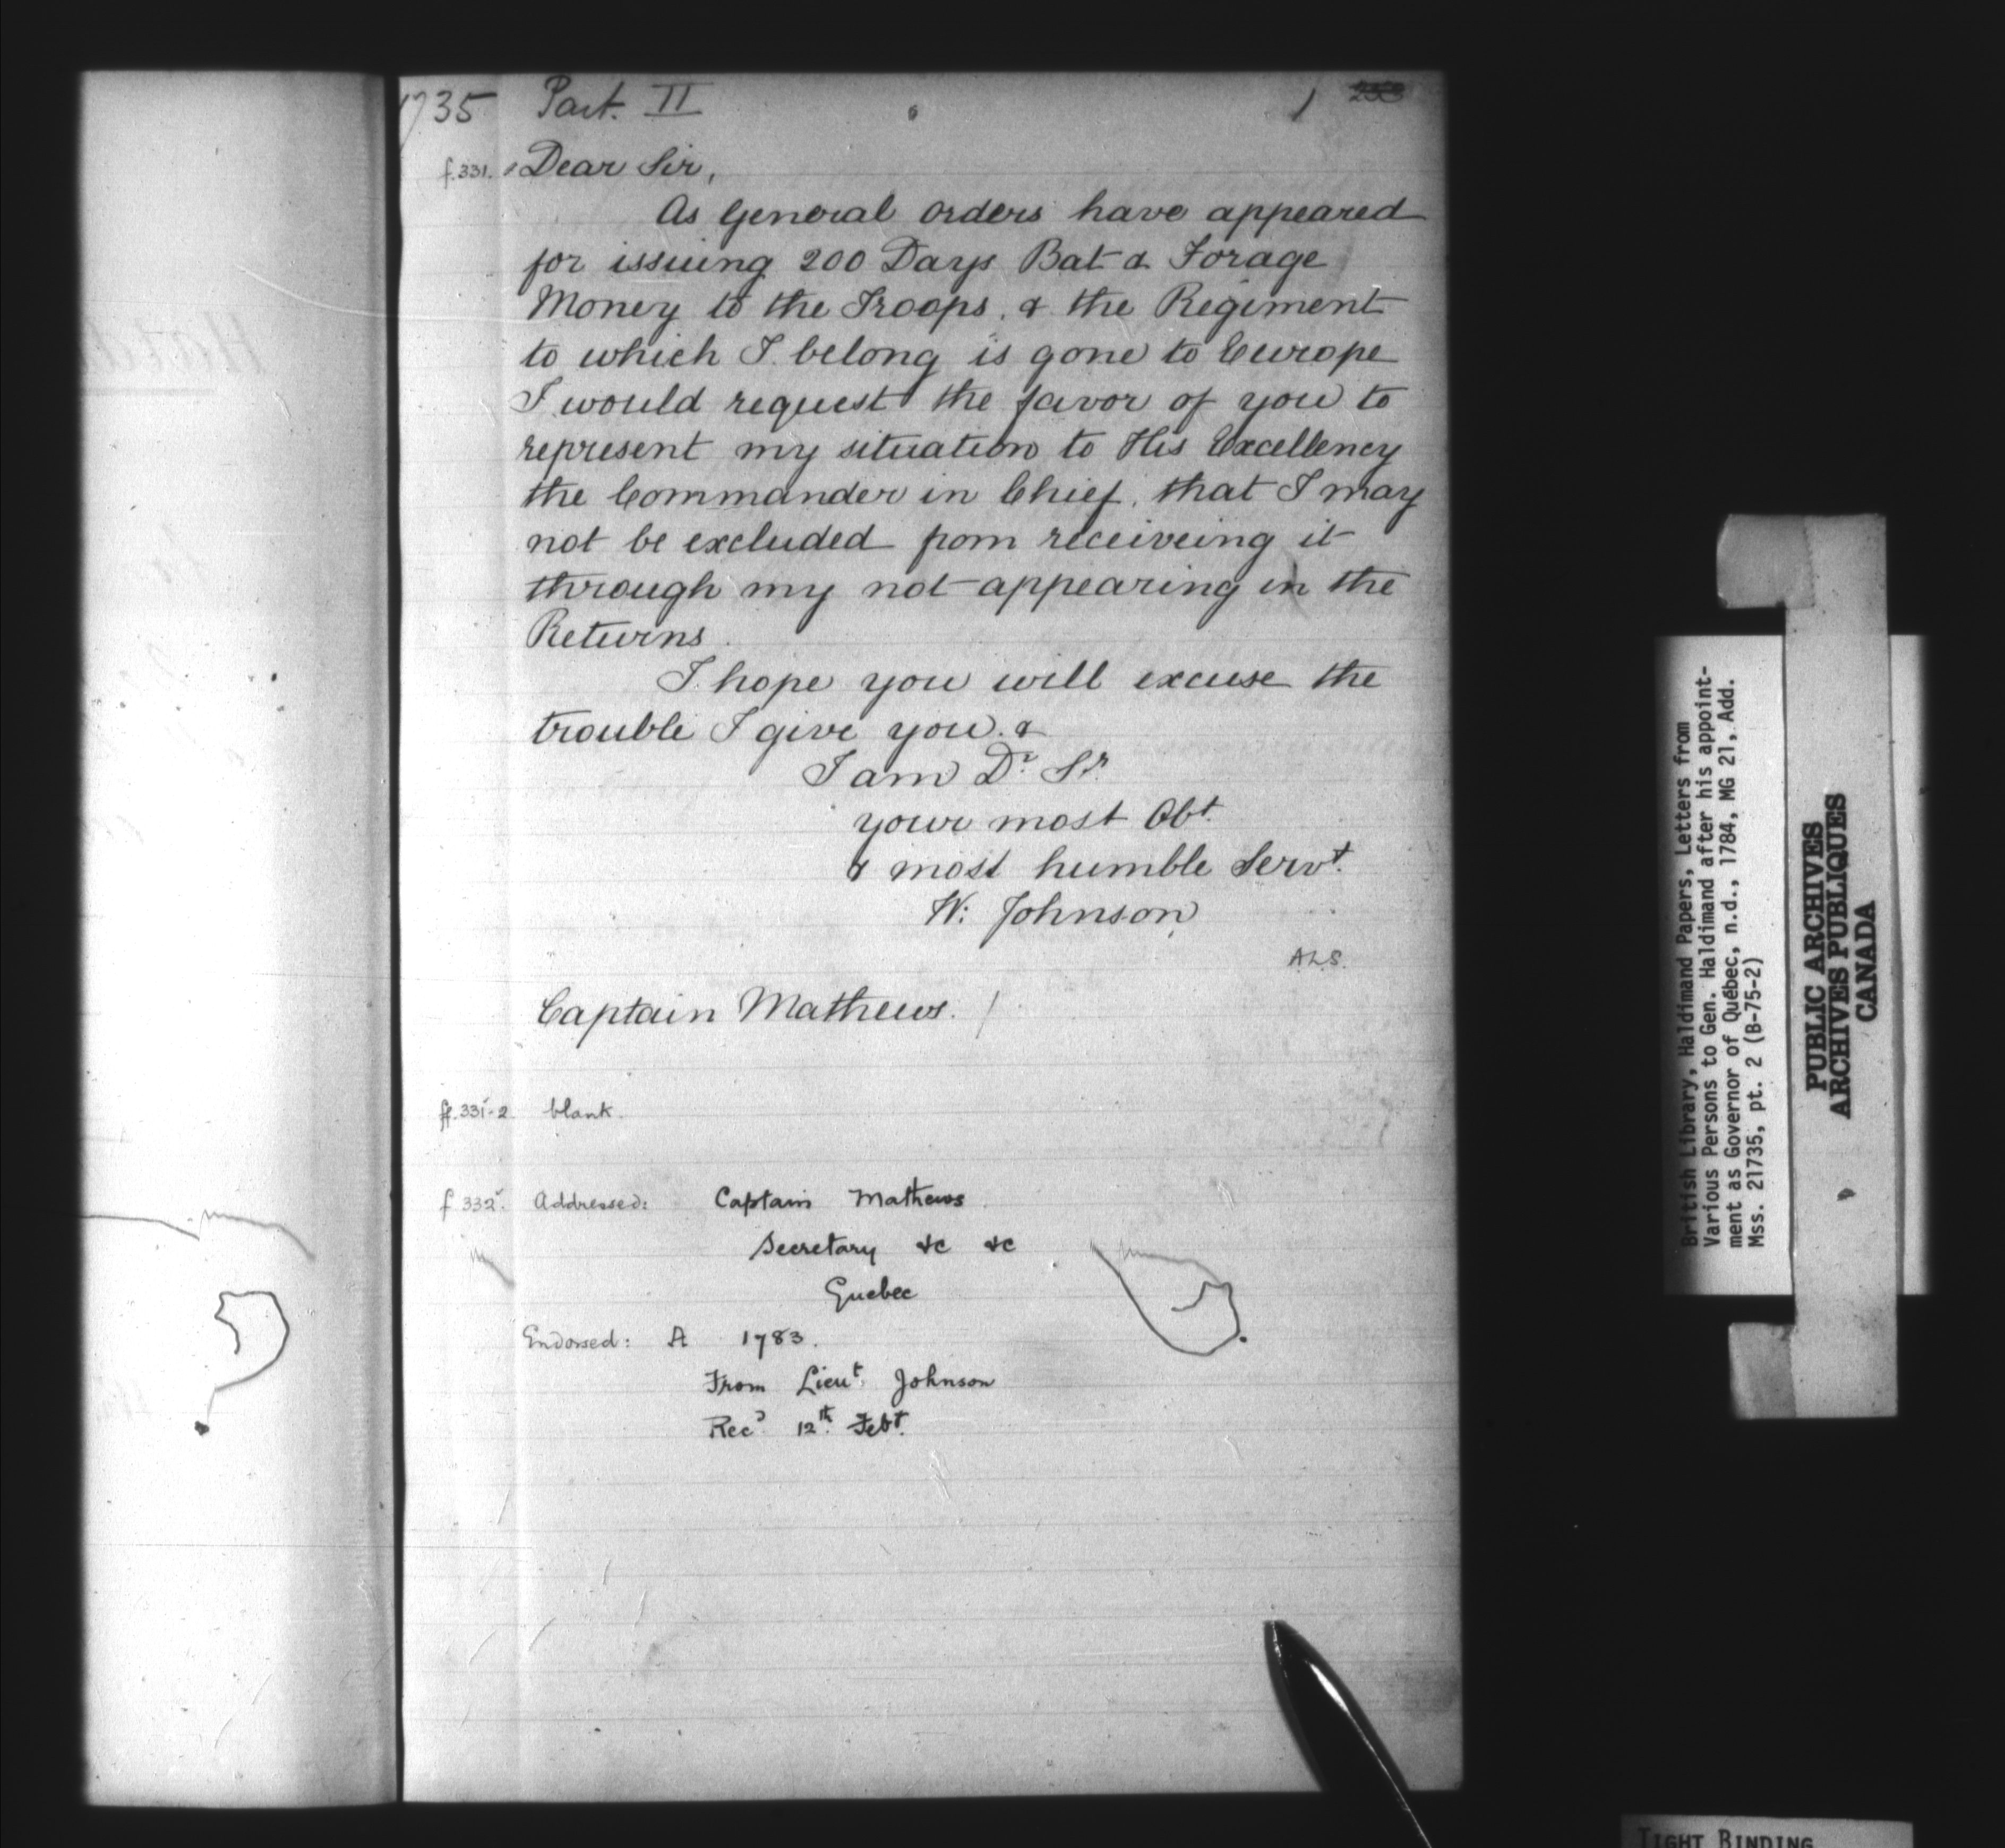 1735 Part. II 1
f.331. Dear Sir,
As General orders have appeared
for issuing 200 Days Bat & Forage
Money to the Troops, & the Regiment
to which I belong is gone to Europe
I would request the favor of you to
represent my situation to His Excellency
the Commander in Chief, that I may
not be excluded from receiveing it
through my not appearing in the
Returns.
I hope you will excuse the
trouble I give you. &
I am Dr. Sr.
your most Obt.
& most humble Servt.
W: Johnson
A.L.S.
Captain Mathews. /
ff.331v-2 blank.
f 332v. Addressed: Captain Mathews
Secretary &c &c
Quebec
Endorsed: A 1783.
From Lieut. Johnson
Recd 12th. Febr.
British Library, Haldimand Papers, Letters from
Various Persons to Gen. Haldimand after his appoint-
ment as Governor of Québec, n.d., 1784, MG 21, Add.
Mss. 21735, pt. 2 (B-75-2)
PUBLIC ARCHIVES
ARCHIVES PUBLIQUES
CANADA
TIGHT BINDING